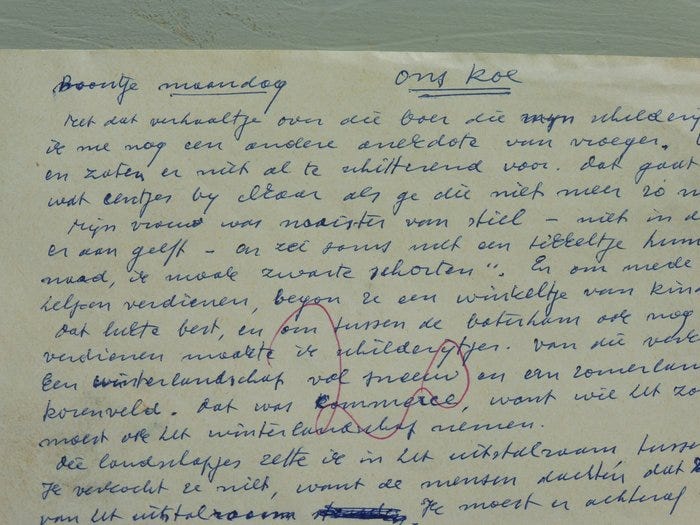 Boontje maandag ons koe
Met dat verhaaltje over die boer die mijn schildery
ik me nog een andere anekdote van vroeger.
en zaten er niet al te schitterend voor. dat gaat
wat centjes by elkaar als ge die niet meer zo
Mijn vrouw was naaister van stiel – niet in d
er aan geeft – en zei soms met een tikkeltje hum
naad, ik maak zwarte schorten". En om mede
helpen verdienen, begon ze een winkeltje van kin
dat lukte best, en om tussen de boterham ook nog
verdienen maakte ik schilderytjes. van die
Een winterlandschap vol sneeuw en een zomerlan
korenveld. dat was commerce, want wie het zo
moest ook het winterlandschap nemen.
die landschapjes zette ik in het uitstalraam tusse
Ik verkocht ze niet, want de mensen dachten dat
van het uitstalraam Ik moest er achteraf